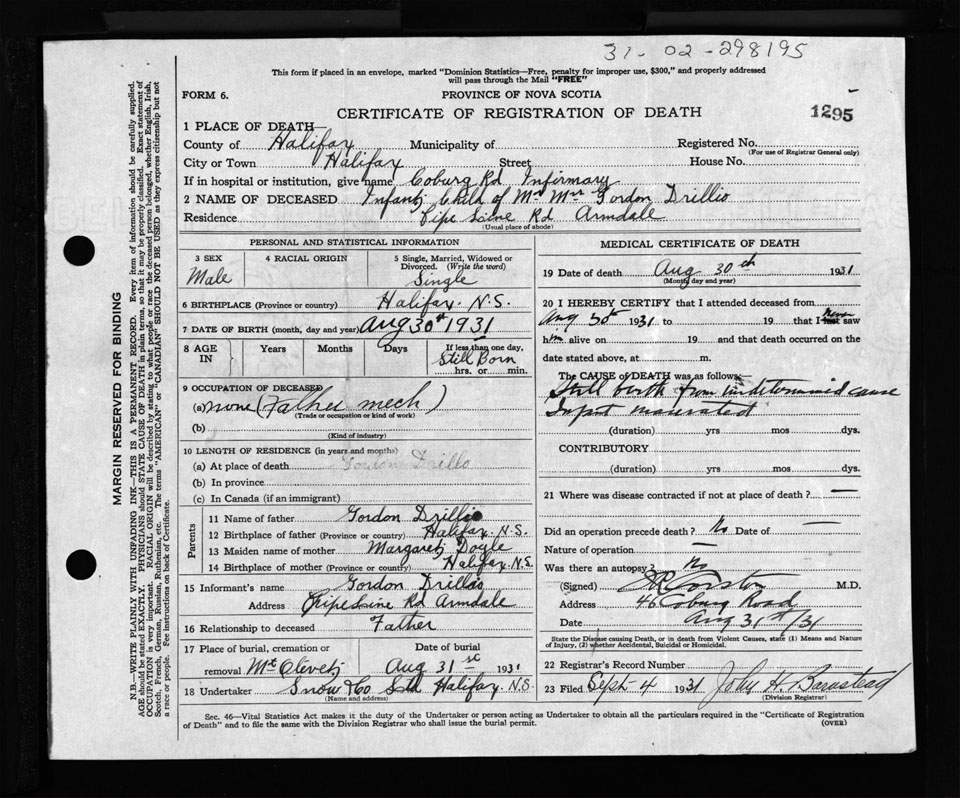 31-02-298195
This form if placed in an envelope, marked "Dominion Statistics—Free, penalty for improper use, $300," and properly addressed
will pass through the Mail "FREE"
FORM 6. PROVINCE OF NOVA SCOTIA
CERTIFICATE OF REGISTRATION OF DEATH 1295
1 PLACE OF DEATH—
County of Halifax Municipality of Registered No.
(For use of Registrar General only)
City or Town Halifax Street House No.
If in hospital or institution, give name Coburg Rd Infirmary
2 NAME OF DECEASED Infant Child of Mr Mrs Gordon Drillio
Residence Pipe Line Rd Armdale
(Usual place of abode)
PERSONAL AND STATISTICAL INFORMATION
3 SEX 4 RACIAL ORIGIN 5 Single, Married, Widowed or
Divorced. (Write the word)
Male Single
6 BIRTHPLACE (Province or country) Halifax. N.S.
7 DATE OF BIRTH (month, day and year) Aug 30th 1931
8 AGE IN Years Months Days If less than one day,
Still Born
hrs. or min.
9 OCCUPATION OF DECEASED
(a) none (Father mech)
(Trade or occupation or kind of work)
(b)
(Kind of industry)
10 LENGTH OF RESIDENCE (in years and months)
(a) At place of death Gordon Drillo
(b) In province
(c) In Canada (if an immigrant)
Parents
11 Name of father Gordon Drillio
12 Birthplace of father (Province or country) Halifax. N.S.
13 Maiden name of mother Margaret Doyle
14 Birthplace of mother (Province or country) Halifax N.S.
15 Informant's name Gordon Drillio
Address Pipe Line Rd Armdale
16 Relationship to deceased Father
17 Place of burial, cremation or Date of burial
removal Mt Olivet Aug 31st 1931
18 Undertaker Snow & Co Ltd Halifax. N.S.
(Name and address)
MEDICAL CERTIFICATE OF DEATH
19 Date of death Aug 30th 1931
(Month, day and year)
20 I HEREBY CERTIFY that I attended deceased from
Aug 30th 1931 to 19 that I last never saw
him alive on 19 and that death occurred on the
date stated above, at m.
The CAUSE of DEATH was as follows:
Still birth from undetermined cause
Infant macerated
(duration) yrs mos dys.
CONTRIBUTORY
(duration) yrs mos dys.
21 Where was disease contracted if not at place of death? —
Did an operation precede death? No Date of —
Nature of operation —
Was there an autopsy? No
(Signed) M.D.
Address 46 Coburg Road
Date Aug 31st/31
State the Disease causing Death, or in death from Violent Causes, state (1) Means and Nature
of Injury, (2) whether Accidental, Suicidal or Homicidal.
22 Registrar's Record Number
23 Filed Sept 4 1931 John H. Barnstead
(Division Registrar)
Sec. 46—Vital Statistics Act makes it the duty of the Undertaker or person acting as Undertaker to obtain all the particulars required in the "Certificate of Registration
of Death" and to file the same with the Division Registrar who shall issue the burial permit. (OVER)
MARGIN RESERVED FOR BINDING
N.B.—WRITE PLAINLY WITH UNFADING INK—THIS IS A PERMANENT RECORD. Every item of information should be carefully supplied.
AGE should be stated EXACTLY. PHYSICIANS should STATE CAUSE OF DEATH in plain terms, so that it may be properly classified. Exact statement of
OCCUPATION is very important. RACIAL ORIGIN will be described by stating to what people or race the deceased person belonged, whether English, Irish,
Scotch, French, German, Russian, Ruthenian, etc. The terms "AMERICAN" or "CANADIAN" SHOULD NOT BE USED as they express citizenship but not
a race or people. See instructions on back of Certificate.